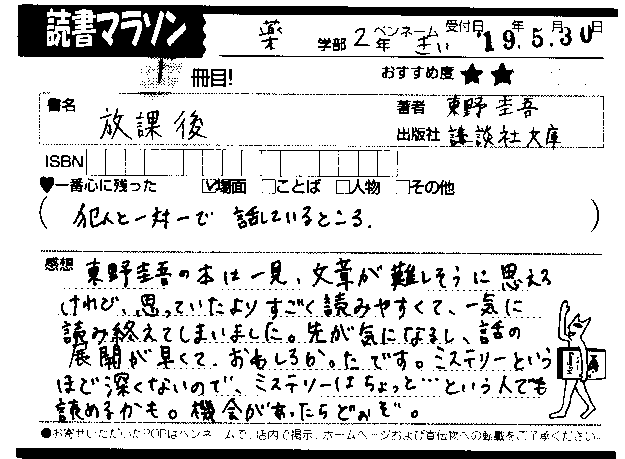 読書マラソン
薬 学部 2年 ペンネーム きい 受付日 '19年5月30日
冊目! おすすめ度 ★★
書名 放課後
著者 東野圭吾
出版社 講談社文庫
ISBN
♥一番心に残った ☑場面 □ことば □人物 □その他
(犯人と一対一で話しているところ.)
感想 東野圭吾の本は一見、文章が難しそうに思える
けれど、思っていたよりすごく読みやすくて、一気に
読み終えてしまいました。先が気になるし、話の
展開が早くて、おもしろかったです。ミステリーという
ほど深くないので、ミステリーはちょっと…という人でも
読めるかも。機会があったらどうぞ。
●お寄せいただいたPOPはペンネームで、店内で掲示、ホームページおよび宣伝物への転載をご了承ください。